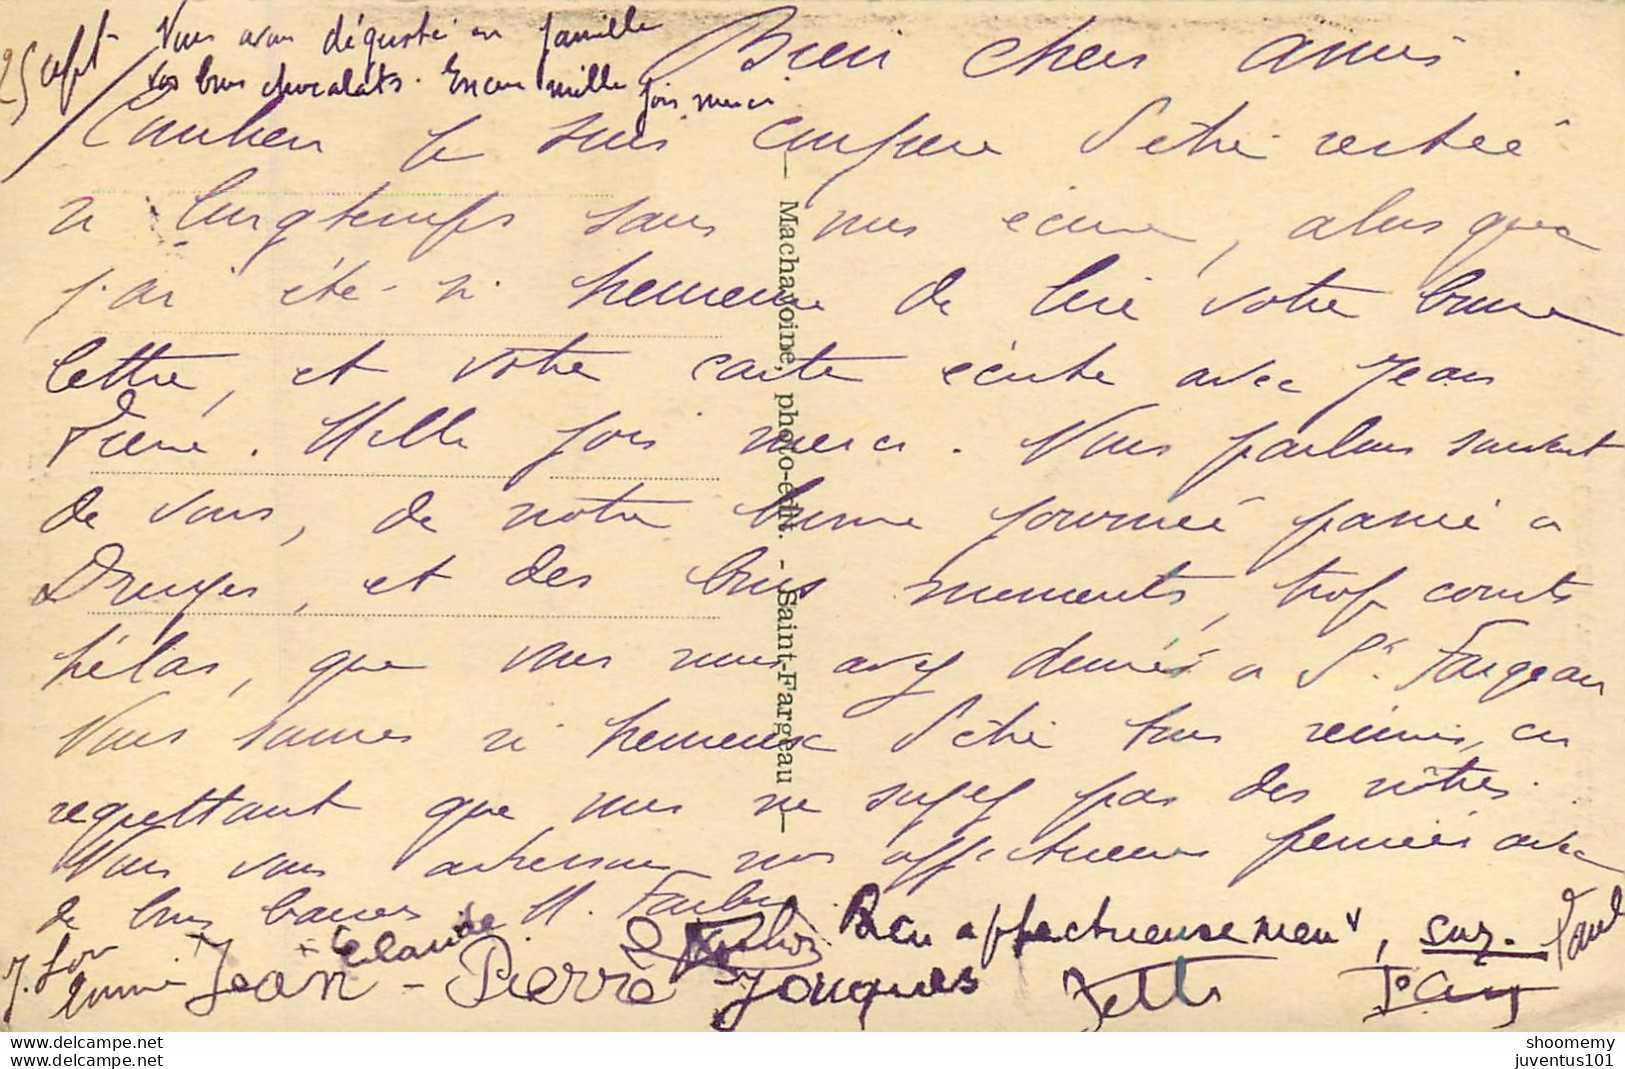 25 Sept
Nous avons dégusté en famille
vos bons chocolats. Encore mille
fois merci
Bien chers amis.
Combien je suis confuse d'être restée
si longtemps sans vous écrire, alors que
j'ai été si heureuse de lire votre bonne
lettre, et votre carte écrite avec Jean
Pierre. Mille fois merci. Nous parlons souvent
de vous, de notre bonne journée passée à
Druyes, et des bons moments, trop courts
hélas, que vous nous avez donnés à St. Fargeau
Nous sommes si heureux d'être tous réunis, en
regrettant que vous ne soyez pas des nôtres.
Nous vous adressons nos affectueuses pensées avec
de bons baisers M.
Bien affectueusement, Suz. Paul
Claude
Jean-Pierre Jacques
Machavoine, photo-édit. - Saint-Fargeau
delcampe.net
delcampe.net
shoomemy
juventus101